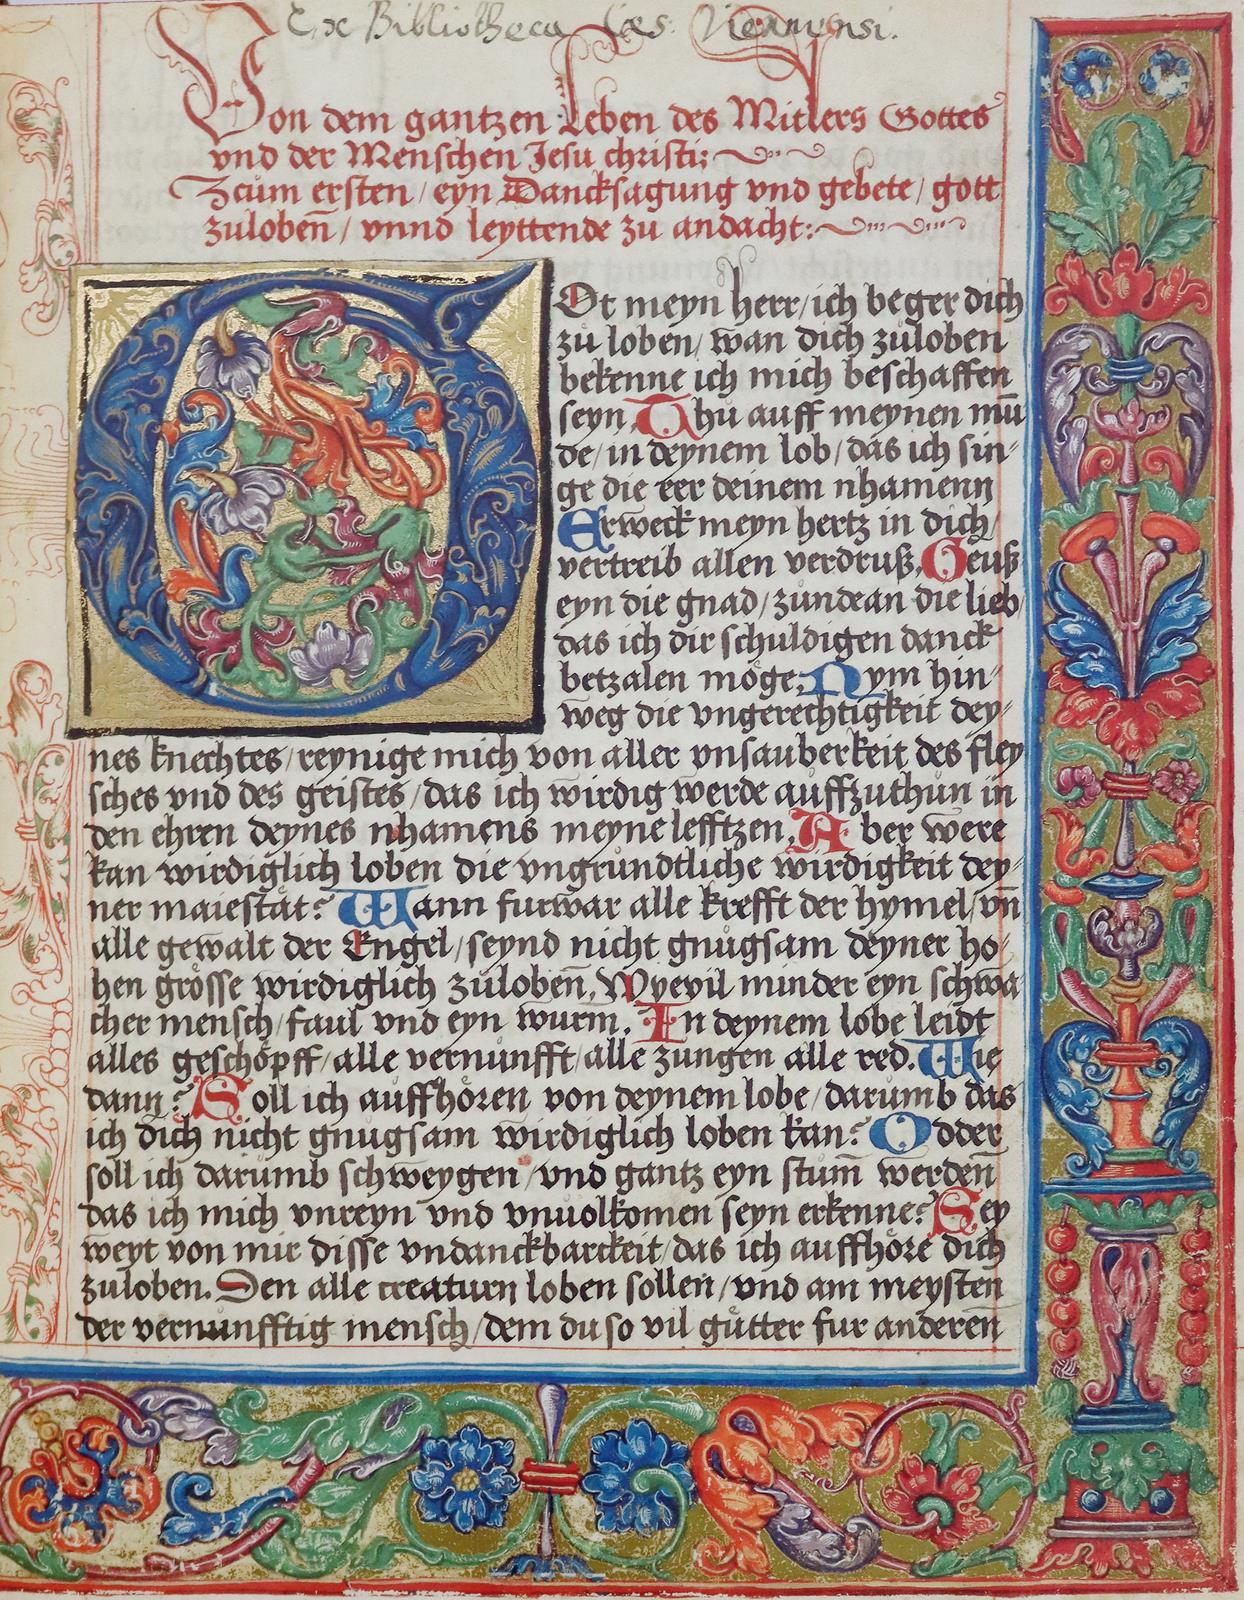 Ex Bibliotheca Caes. Viennensi.
Von dem gantzen Leben des Mitlers Gottes
vnd der Menschen Jesu christi:
Zcum ersten / eyn Dancksagung vnd gebete / gott
zulobeñ / vnnd leyttende zu andacht:
GOt meyn herr / ich beger dich
zů loben / wan dich zůloben
bekenne ich mich beschaffen
seyn. Thů auff meynen mũ
de / in deynem lob / das ich sin-
ge die eer deinem nhamenn
Erweck meyn hertz in dich /
vertreib allen verdruß. Geuß
eyn die gnad / zůnde an die lieb /
das ich dir schuldigen danck
betzalen möge. Nym hin-
weg die vngerechtigkeit dey-
nes knechtes / reynige mich von aller vnsauberkeit des fley
sches vnd des geistes / das ich wirdig werde auffzuthůn in
den ehren deynes nhamens meyne lefftzen. Aber were
kan wirdiglich loben die vngrůndtliche wirdigkeit dey-
ner maiestät? Wann furwar alle krefft der hymel / vñ
alle gewalt der Engel / seynd nicht gnůgsam deyner ho-
hen grösse wirdiglich zůlobeñ. Wyevil minder eyn schwa-
cher mensch / faul vnd eyn wurm. In deynem lobe leidt
alles geschöpff / alle vernůnfft / alle zungen alle red. Wie
dann? Soll ich auffhören von deynem lobe / darůmb das
ich dich nicht gnugsam wirdiglich loben kan? Odder
soll ich darůmb schweygen / vnd gantz eyn stum̃ werdeñ
das ich mich vnreyn vnd vnuolkomen seyn erkenne? Sey
weyt von mir disse vndanckbarckeit / das ich auffhöre dich
zuloben. Den alle creaturn loben sollen / vnd am meysten
der vernunfftig mensch / dem du so vil gůtter fur andereñ